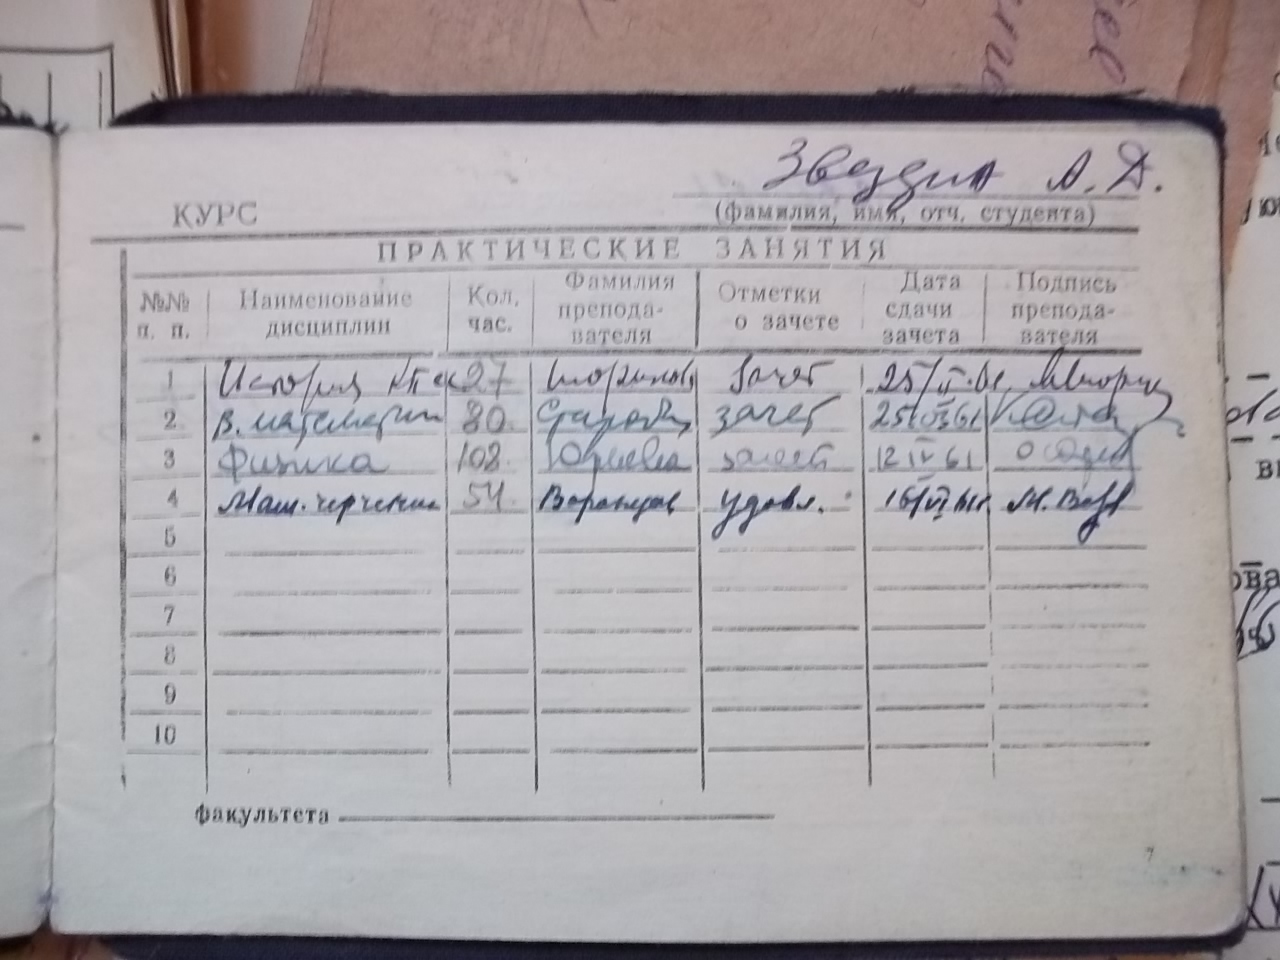 Звездин А. Д.
КУРС
(фамилия, имя, отч. студента)
ПРАКТИЧЕСКИЕ ЗАНЯТИЯ
№№ п. п. Наименование дисциплин Кол. час. Фамилия препода-вателя Отметки о зачете Дата сдачи зачета Подпись препода-вателя
1 История 27 зачет
2 В. математики 80. зачет
3 Физика 108. Юрьева зачет 12 IV 61
4 Маш. черчение 54. Воронцов удовл. 16/VI 61г
5
6
7
8
9
10
факультета